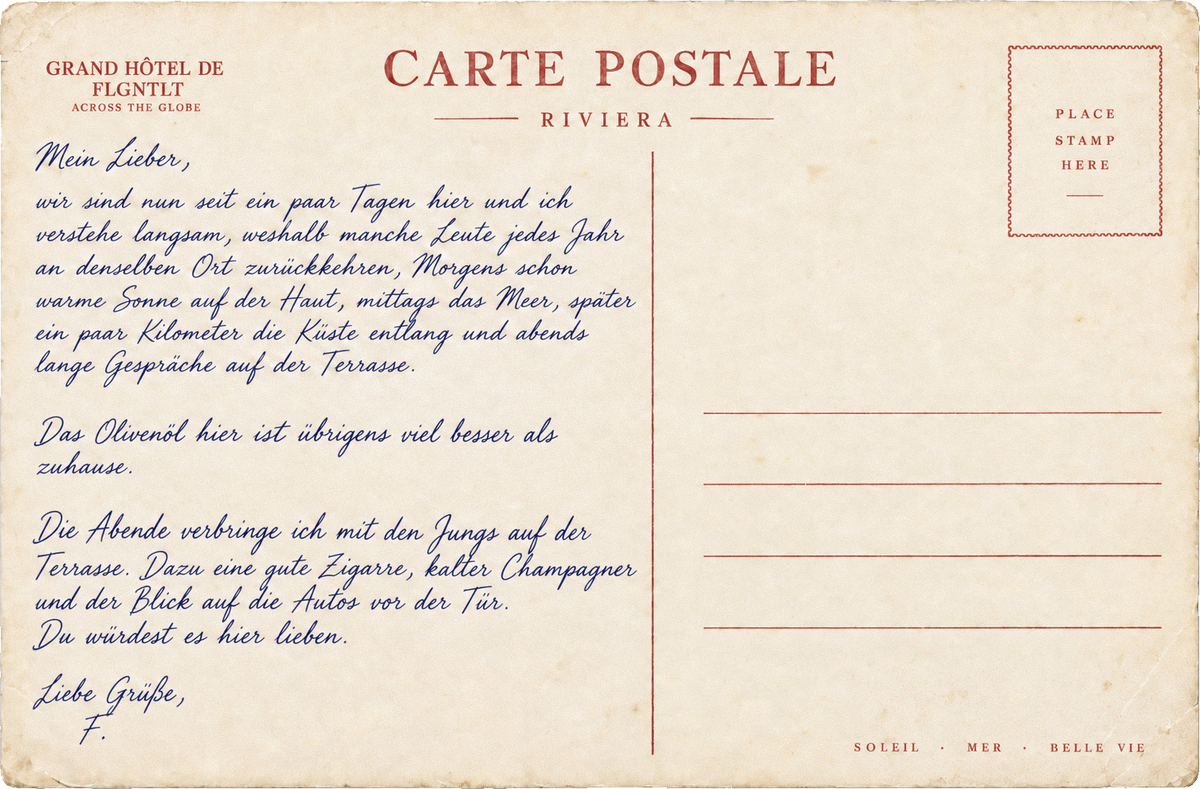 GRAND HÔTEL DE
FLGNTLT
ACROSS THE GLOBE
CARTE POSTALE
RIVIERA
PLACE
STAMP
HERE
Mein Lieber,
wir sind nun seit ein paar Tagen hier und ich
verstehe langsam, weshalb manche Leute jedes Jahr
an denselben Ort zurückkehren, Morgens schon
warme Sonne auf der Haut, mittags das Meer, später
ein paar Kilometer die Küste entlang und abends
lange Gespräche auf der Terrasse.
Das Olivenöl hier ist übrigens viel besser als
zuhause.
Die Abende verbringe ich mit den Jungs auf der
Terrasse. Dazu eine gute Zigarre, kalter Champagner
und der Blick auf die Autos vor der Tür.
Du würdest es hier lieben.
Liebe Grüße,
F.
SOLEIL · MER · BELLE VIE